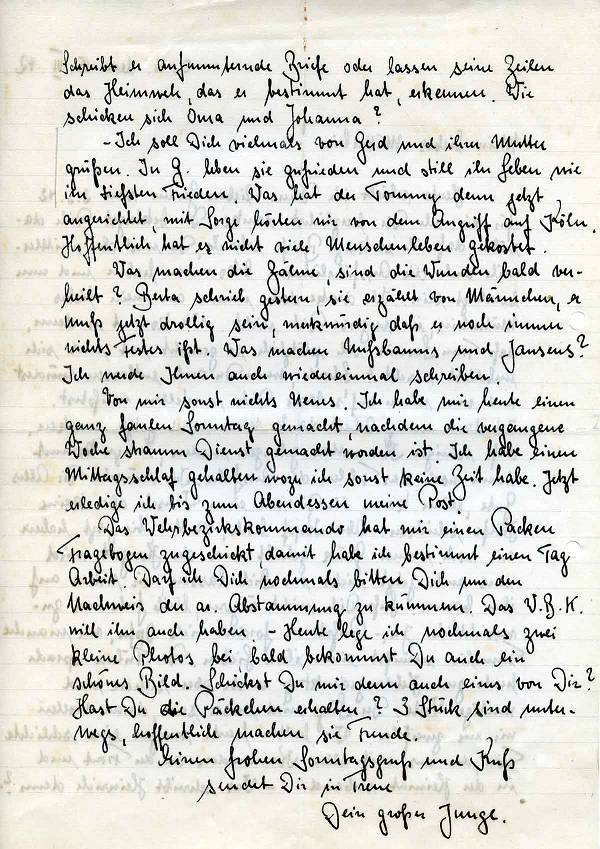 Schreibt er aufmunternde Briefe oder lassen seine Zeilen
das Heimweh, das er bestimmt hat, erkennen. Wie
schicken sich Oma und Johanna?
- Ich soll Dich vielmals von Gerd und ihrer Mutter
grüßen. In G. leben sie zufrieden und still ihr Leben wie
im tiefsten Frieden. Was hat der Tommy denn jetzt
angerichtet, mit Sorge hörten wir von dem Angriff auf Köln.
Hoffentlich hat es nicht viele Menschenleben gekostet.
Was machen die Zähne, sind die Wunden bald ver-
heilt? Berta schrieb gestern, sie erzählt von Männchen, er
muß jetzt drollig sein, merkwürdig daß er noch immer
nichts festes ißt. Was machen Nußbaums und Jansens?
Ich werde Ihnen auch wiedereinmal schreiben.
Von mir sonst nichts Neues. Ich habe mir heute einen
ganz faulen Sonntag gemacht, nachdem die vergangene
Woche stramm Dienst gemacht worden ist. Ich habe einen
Mittagsschlaf gehalten wozu ich sonst keine Zeit habe. Jetzt
erledige ich bis zum Abendessen meine Post.
Das Wehrbezirkskommando hat mir einen Packen
Fragebogen zugeschickt, damit habe ich bestimmt einen Tag
Arbeit. Darf ich Dich nochmals bitten Dich um den
Nachweis der ar. Abstammung zu kümmern. Das W.B.K.
will ihn auch haben. - Heute lege ich nochmals zwei
kleine Photos bei bald bekommst Du auch ein
schönes Bild. Schickst Du mir denn auch eines von Dir?
Hast Du die Päckchen erhalten? 3 Stück sind unter-
wegs, hoffentlich machen sie Freude.
Einen frohen Sonntagsgruß und Kuß
sendet Dir in Treue
Dein großer Junge.